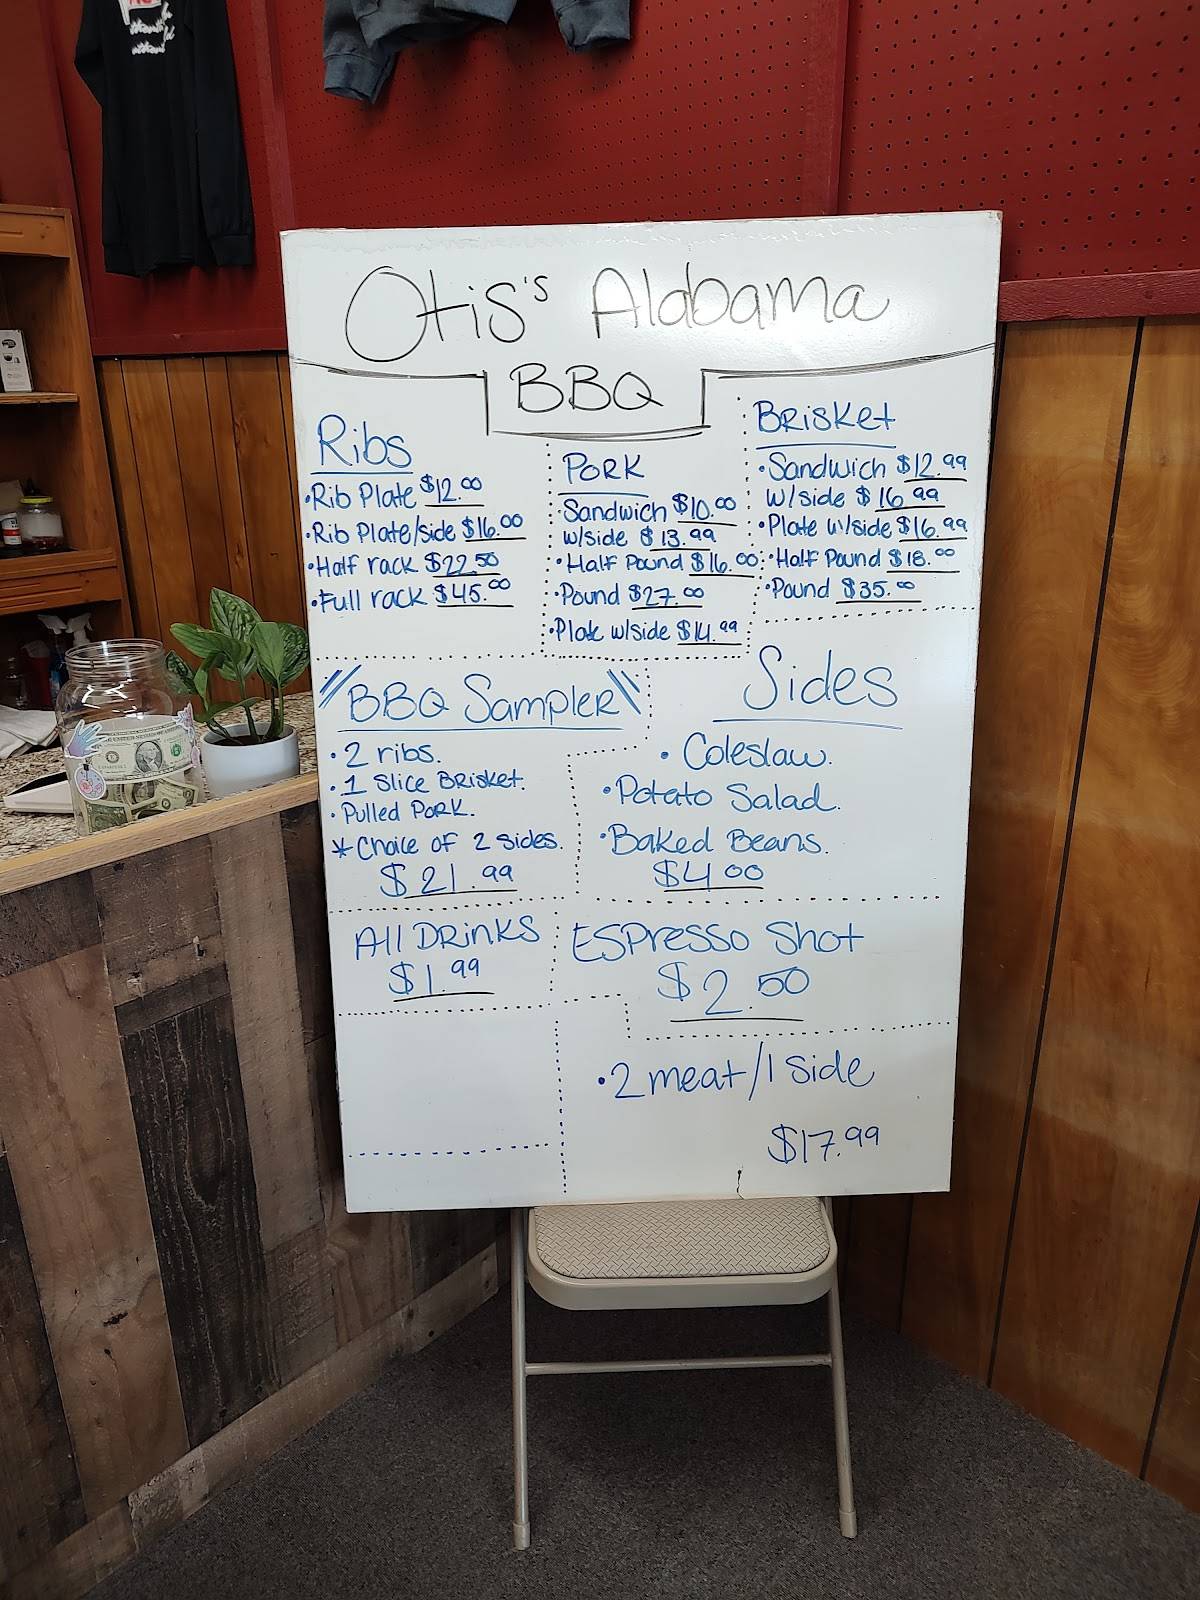 Otis's Alabama
BBQ
Ribs
•Rib Plate $12.00
•Rib Plate/side $16.00
•Half rack $22.50
•Full rack $45.00
Pork
•Sandwich $10.00
w/side $13.99
•Half Pound $16.00
•Pound $27.00
•Plate w/side $14.99
Brisket
•Sandwich $12.99
w/side $16.99
•Plate w/side $16.99
•Half Pound $18.00
•Pound $35.00
BBQ Sampler
•2 ribs.
•1 Slice Brisket.
•Pulled Pork.
*Choice of 2 sides.
$21.99
Sides
•Coleslaw.
•Potato Salad.
•Baked Beans.
$4.00
All Drinks
$1.99
Espresso Shot
$2.50
•2 meat/1 side
$17.99